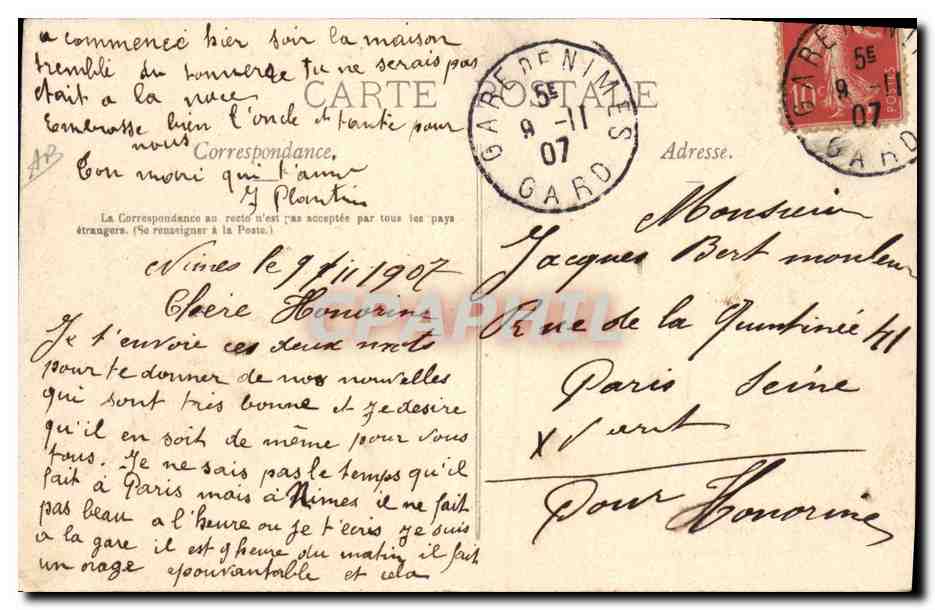 a commencé hier soir la maison
tremblé du tonnerge tu ne serais pas
etait a la noce
Embrasse bien l'oncle et tante pour
nous
Ton mari qui t'aime
J Plantin
AB
CARTE POSTALE
Correspondance.
Adresse.
La Correspondance au recto n'est pas acceptée par tous les pays
étrangers. (Se renseigner à la Poste.)
GARE DE NIMES
5E
9 -11
07
GARD
GARE DE NIM
5E
9 -11
07
GARD
10c
POSTES
Nimes le 9/11 1907
Chère Honorine
Je t'envoie ces deux mots
pour te donner de nos nouvelles
qui sont très bonne et je desire
qu'il en soit de même pour vous
tous. Je ne sais pas le temps qu'il
fait à Paris mais à Nimes il ne fait
pas beau a l'heure ou je t'ecris je suis
a la gare il est 9 heure du matin il fait
un orage epouvantable et cela
Monsieur
Jacques Bert mouleur
Rue de la Quintinée 41
Paris Seine
XV arrt
Pour Honorine
CPAPHIL